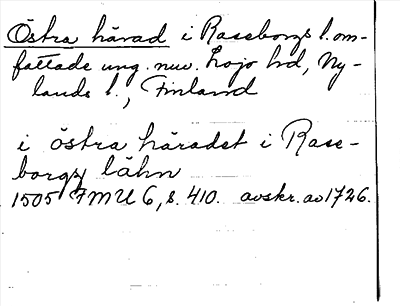 Östra härad i Raseborgs l. om-
fattade ung. nuv. Lojo hd, Ny-
lands l., Finland
i östra häradet i Rase-
borgz lähn
1505 FMU 6, s. 410. avskr. av 1726.